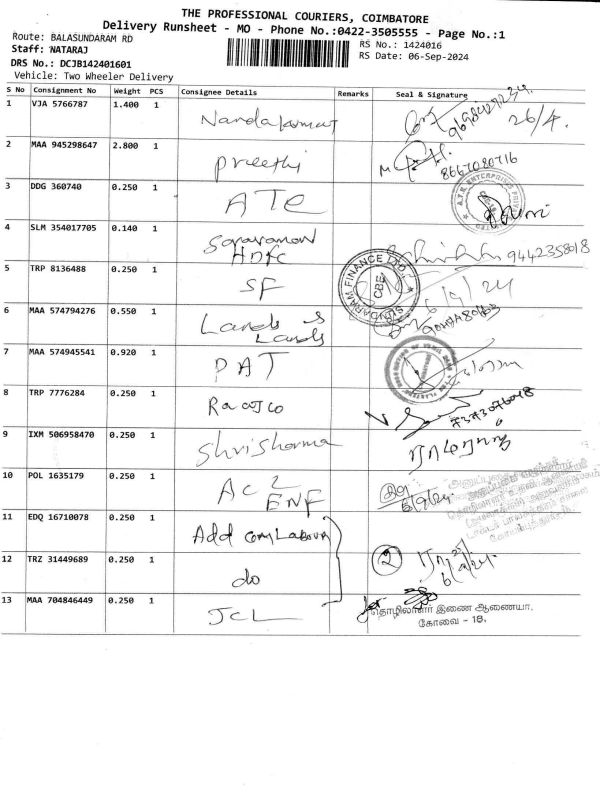 THE PROFESSIONAL COURIERS, COIMBATORE
Delivery Runsheet - MO - Phone No.:0422-3505555 - Page No.:1
Route: BALASUNDARAM RD
Staff: NATARAJ
DRS No.: DCJB142401601
Vehicle: Two Wheeler Delivery
RS No.: 1424016
RS Date: 06-Sep-2024
S No Consignment No Weight PCS Consignee Details Remarks Seal & Signature
1 VJA 5766787 1.400 1 Nandakumar 26/4.
2 MAA 945298647 2.800 1 preethi 8667080716
3 DDG 360740 0.250 1 ATE
4 SLM 354017705 0.140 1 Saravanan
HDFC
9442358018
5 TRP 8136488 0.250 1 SF
SUNDARAM FINANCE LTD.
CBE
6/9/24
6 MAA 574794276 0.550 1 Lands &
Lands
7 MAA 574945541 0.920 1 PAT
8 TRP 7776284 0.250 1
9 IXM 506958470 0.250 1 Shri Sharma
10 POL 1635179 0.250 1 ACL
ENF
6/9/24
11 EDQ 16710078 0.250 1 Add com Labour
12 TRZ 31449689 0.250 1 do
2
6/9/24
13 MAA 704846449 0.250 1 JCL
தொழிலாளர் இணை ஆணையர்.
கோவை - 18.